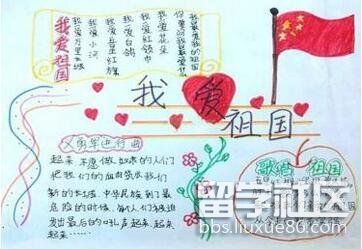 我爱祖国
我爱万里长城
我爱小河
我爱五星红旗
我爱白鸽
我爱红领巾
我爱
祖国
义勇军进行曲
起来 不愿做奴隶的人们
把我们的血肉筑成我们
新的长城 中华民族到了最
危险的时候,每个人们被迫
发出最后的吼声 起来 起来
起来……
歌唱 祖国
留学社区
bbs.liuxue86.com